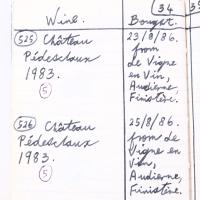 34
35
Wine.
Bought.
525 Château
Pédesclaux
1983.
5
23/8/86.
from
de Vigne
en Vin,
Audierne,
Finistère.
526 Château
Pédesclaux
1983.
5
25/8/86.
from de
Vigne en
Vin,
Audierne,
Finistère.